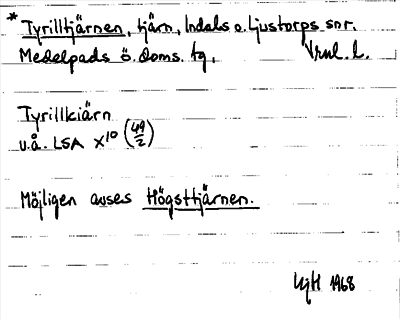 * Tyrilltjärnen, tjärn, Indals o. Ljustorps snr.
Medelpads ö. doms. tg, Vrml. l.
Tyrillkiärn
u.å. LSA X10 (49/2)
Möjligen avses Högsttjärnen.
1968